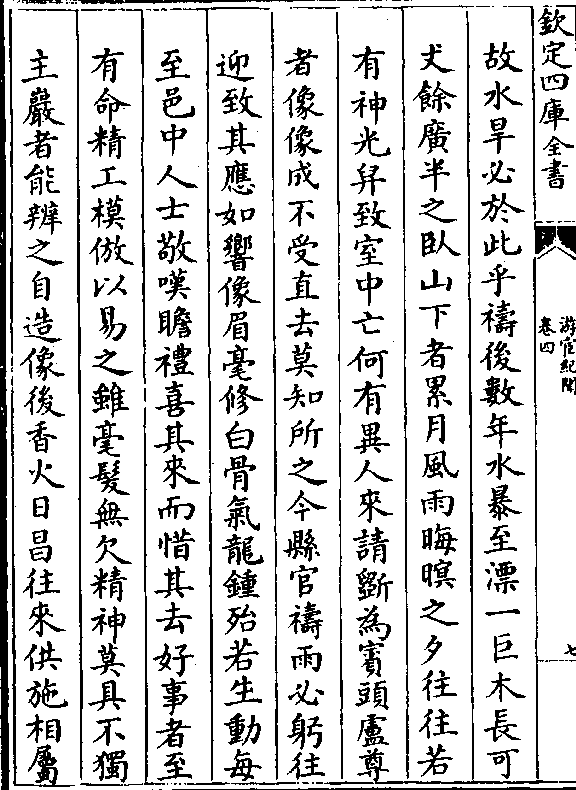 欽定四庫全書
游宦紀聞
卷四
七
故水旱必於此乎禱後數年水暴至漂一巨木長可
丈餘廣半之臥山下者累月風雨晦暝之夕往往若
有神光舁致室中亡何有異人來請斵為賓頭盧尊
者像像成不受直去莫知所之今縣官禱雨必躬往
迎致其應如響像眉毫修白骨氣龍鍾殆若生動每
至邑中人士敬嘆瞻禮喜其來而惜其去好事者至
有命精工模倣以易之雖毫髮無欠精神莫具不獨
主巖者能辨之自造像後香火日昌往來供施相屬